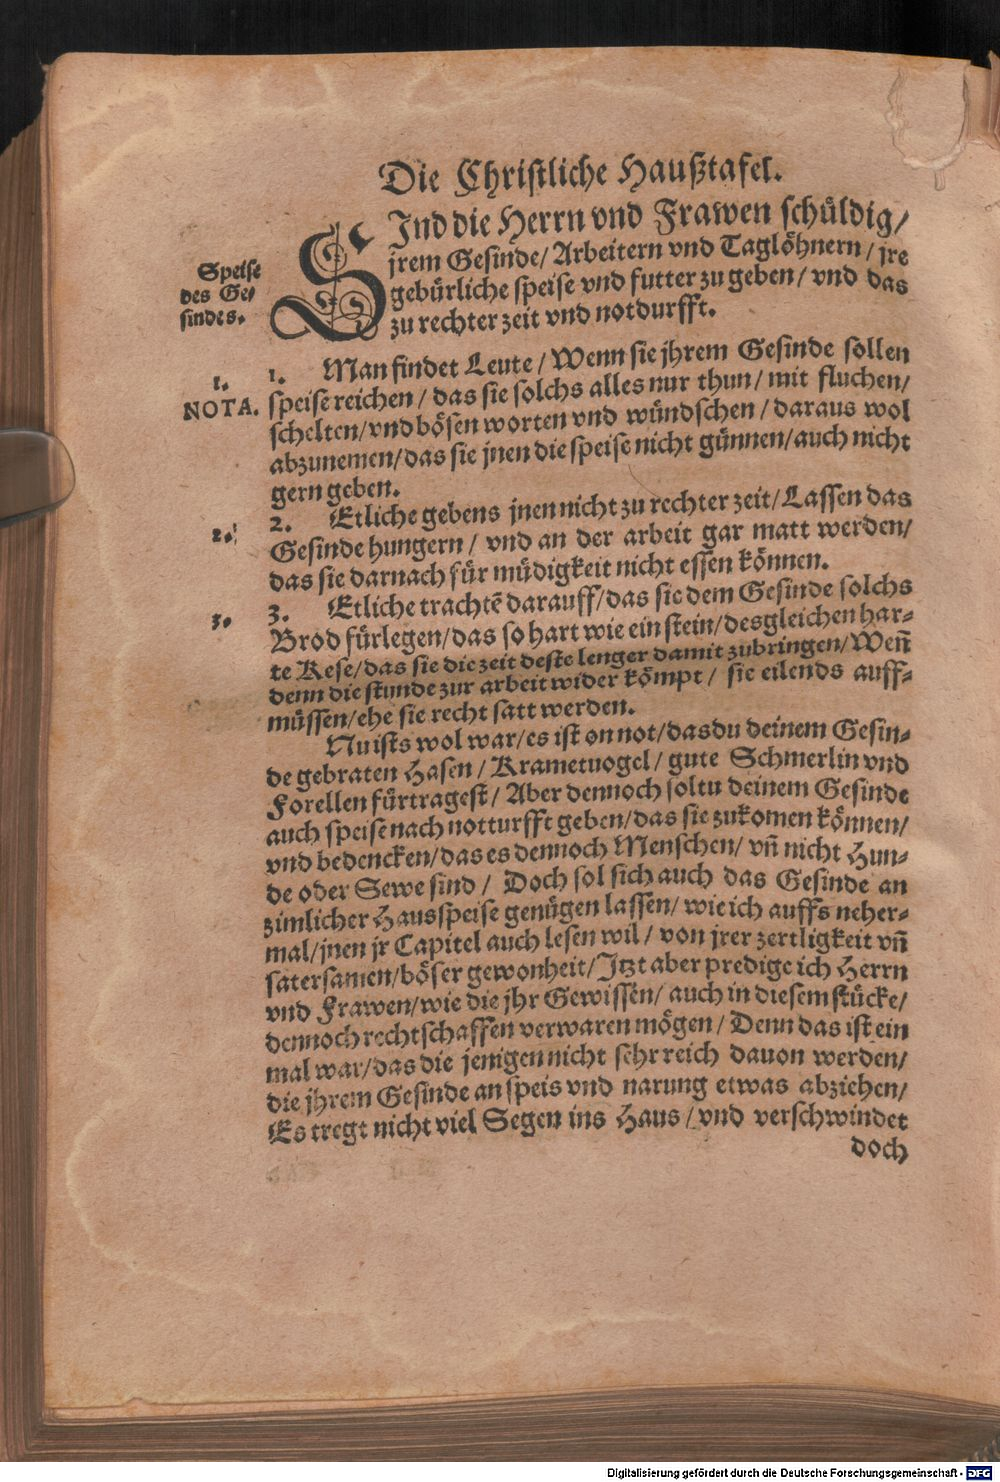 Die Christliche Haußtafel.
SInd die Herrn vnd Frawen schüldig/
jrem Gesinde/ Arbeitern vnd Taglöhnern/ jre
gebürliche speise vnd futter zu geben/ vnd das
zu rechter zeit vnd notdurfft.
Speise
des Ge/
sindes.
1.
NOTA.
1. Man findet Leute/ Wenn sie jhrem Gesinde sollen
speise reichen/ das sie solchs alles nur thun/ mit fluchen/
schelten/ vnd bösen worten vnd wündschen/ daraus wol
abzunemen/ das sie jnen die speise nicht günnen/ auch nicht
gern geben.
2.
2. Etliche gebens jnen nicht zu rechter zeit/ Lassen das
Gesinde hungern/ vnd an der arbeit gar matt werden/
das sie darnach für müdigkeit nicht essen können.
3.
3. Etliche trachtē darauff/ das sie dem Gesinde solchs
Brod fürlegen/ das so hart wie ein stein/ desgleichen har-
te Kese/ das sie die zeit deste lenger damit zubringen/ Weñ
denn die stunde zur arbeit wider kömpt/ sie eilends auff-
müssen/ ehe sie recht satt werden.
Nu ists wol war/ es ist on not/ das du deinem Gesin-
de gebraten Hasen/ Krametuogel/ gute Schmerlin vnd
Forellen fürtragest/ Aber dennoch soltu deinem Gesinde
auch speise nach notturfft geben/ das sie zukomen können/
vnd bedencken/ das es dennoch Menschen/ vñ nicht Hun-
de oder Sewe sind/ Doch sol sich auch das Gesinde an
zimlicher Hausspeise genügen lassen/ wie ich auffs neher-
mal/ jnen jr Capitel auch lesen wil/ von jrer zertligkeit vñ
satersamen/ böser gewonheit/ Jtzt aber predige ich Herrn
vnd Frawen/ wie die jhr Gewissen/ auch in diesem stücke/
dennoch rechtschaffen verwaren mögen/ Denn das ist ein
mal war/ das die jenigen nicht sehr reich dauon werden/
die jhrem Gesinde an speis vnd narung etwas abziehen/
Es tregt nicht viel Segen ins Haus/ vnd verschwindet
doch
Digitalisierung gefördert durch die Deutsche Forschungsgemeinschaft - DFG